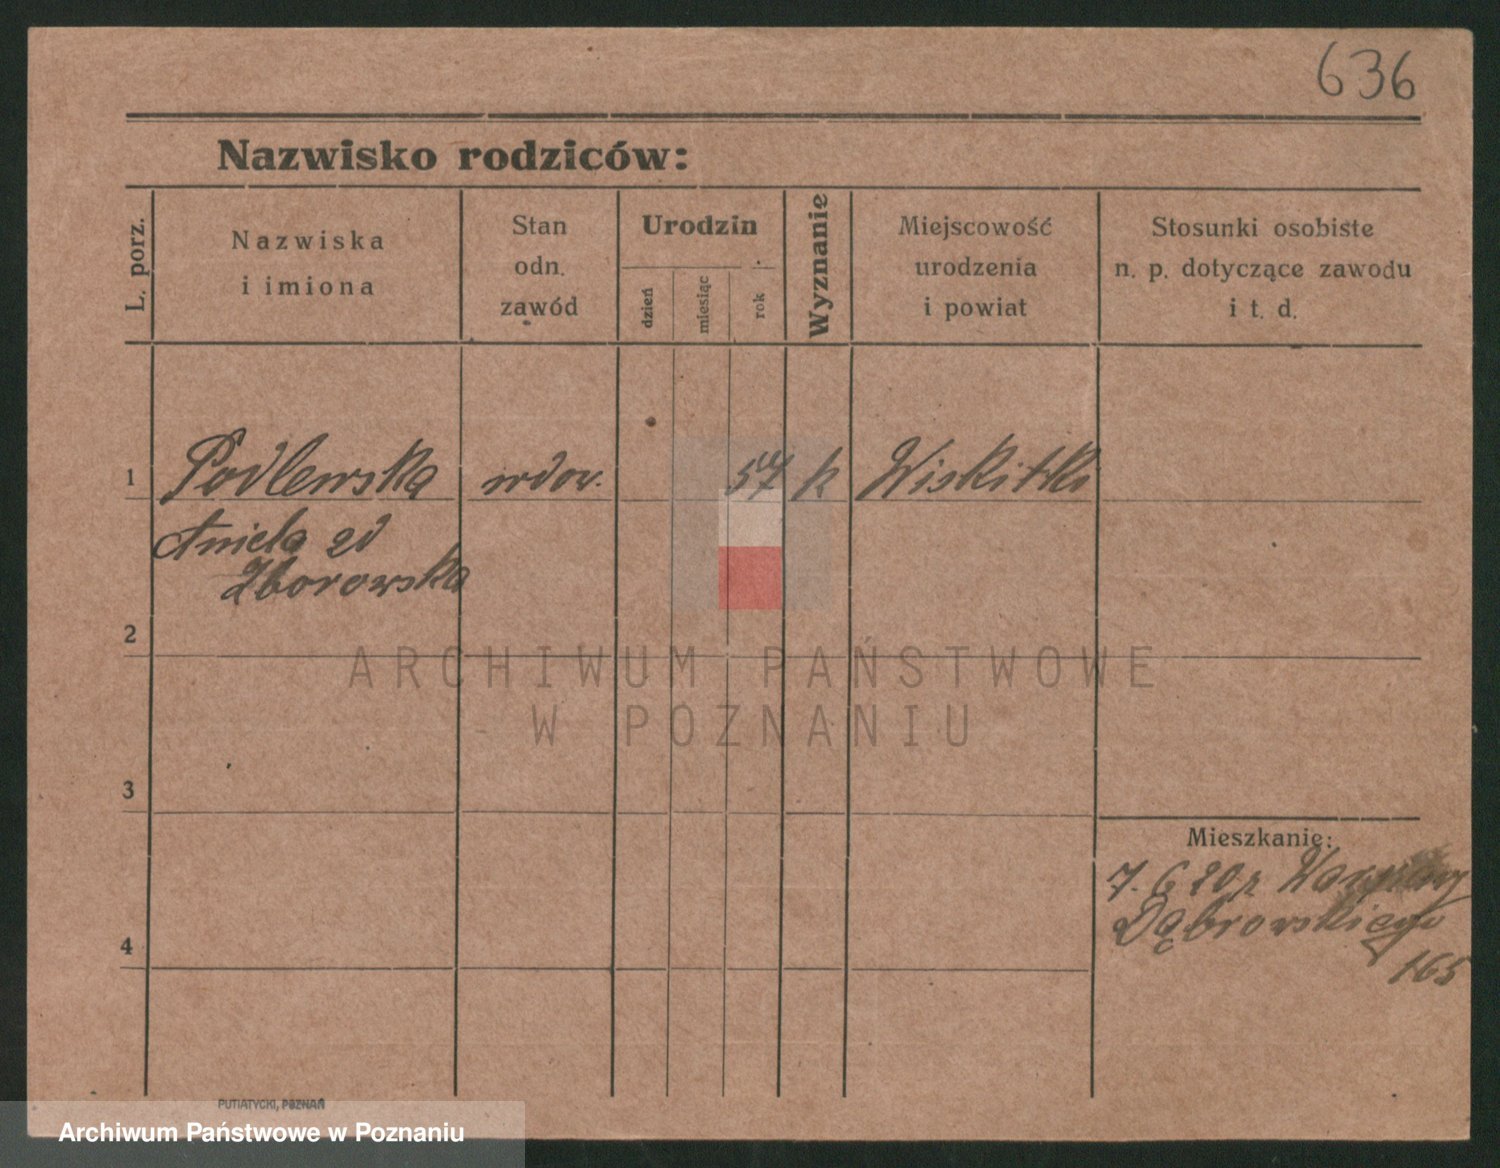 636
Nazwisko rodziców:
L. porz.
Nazwiska
i imiona
Stan
odn.
zawód
Urodzin
dzień
miesiąc
rok
Wyznanie
Miejscowość
urodzenia
i powiat
Stosunki osobiste
n. p. dotyczące zawodu
i t. d.
1 Podlewska wdow. 57 k Wiskitki
Aniela zd
Zborowska
2
ARCHIWUM PAŃSTWOWE
W POZNANIU
3
Mieszkanie:
7. 6 20 z
Dąbrowskiego
165
4
PUTIATYCKI, POZNAŃ
Archiwum Państwowe w Poznaniu